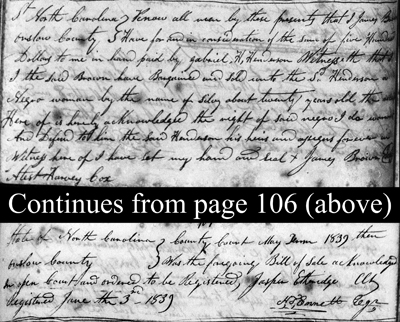 St North Carolina } Know all men by these presents that I James B
onslow County } I have for and in consideration of the sum of five Hundred
Dollars to me in hand paid by gabriel H, Henderson Witnesseth that
I the said Brown have Bargained and sold unto the Sd Henderson a
Negro woman by the name of Silvy about twenty years old the
Here of is hereby acknowledged the right of said negro I do warrant
and Defend to him the said Henderson his heirs and assigns forever in
Witness here of I have set my hand and seal + James Brown
Attest Harvey Cox
Continues from page 106 (above)
State of North Carolina } County Court May Term 1839 then
onslow County } Was the foregoing Bill of sale acknowledged
in open Court and ordered to be Registered Jasper Etheridge Clk
Registered June the 3rd 1839